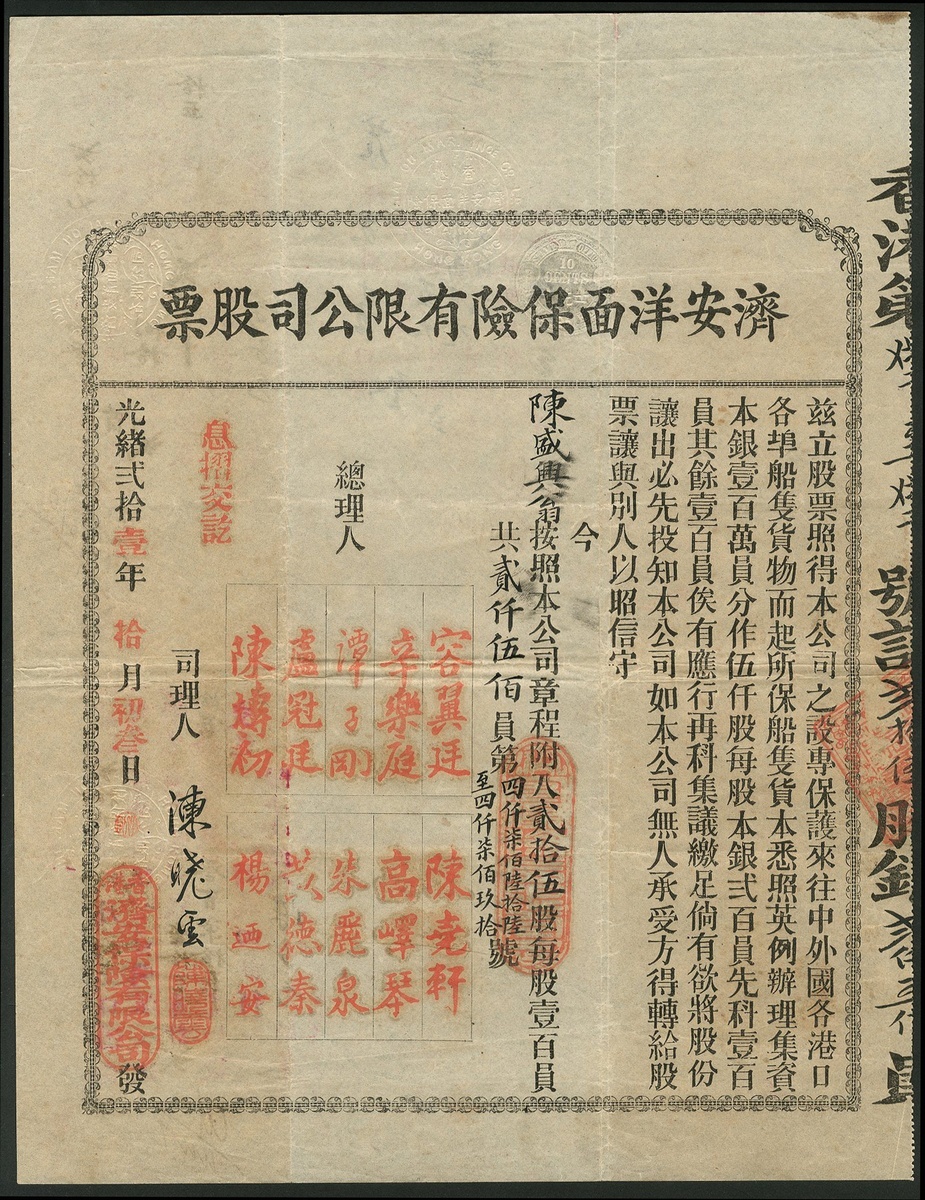 濟安洋面保險有限公司股票
茲立股票照得本公司之設專保護來往中外國各港口
各埠船隻貨物而起所保船隻貨本悉照英例辦理集資
本銀壹百萬員分作伍仟股每股本銀弍百員先科壹百
員其餘壹百員俟有應行再科集議繳足倘有欲將股份
讓出必先投知本公司如本公司無人承受方得轉給股
票讓與別人以昭信守
今
陳盛興翁按照本公司章程附入貳拾伍股每股壹百員
共貳仟伍佰員第四仟柒佰陸拾陸
至四仟柒佰玖拾號
總理人
容翼廷
辛樂庭
譚子剛
盧冠廷
陳
初
陳堯軒
高嶧琴
朱麗泉
德秦
楊迺安
息摺交訖
司理人 陳曉雲
光緒弍拾壹年拾月初叁日
香港濟安保險有限公司發
HONG KONG
10